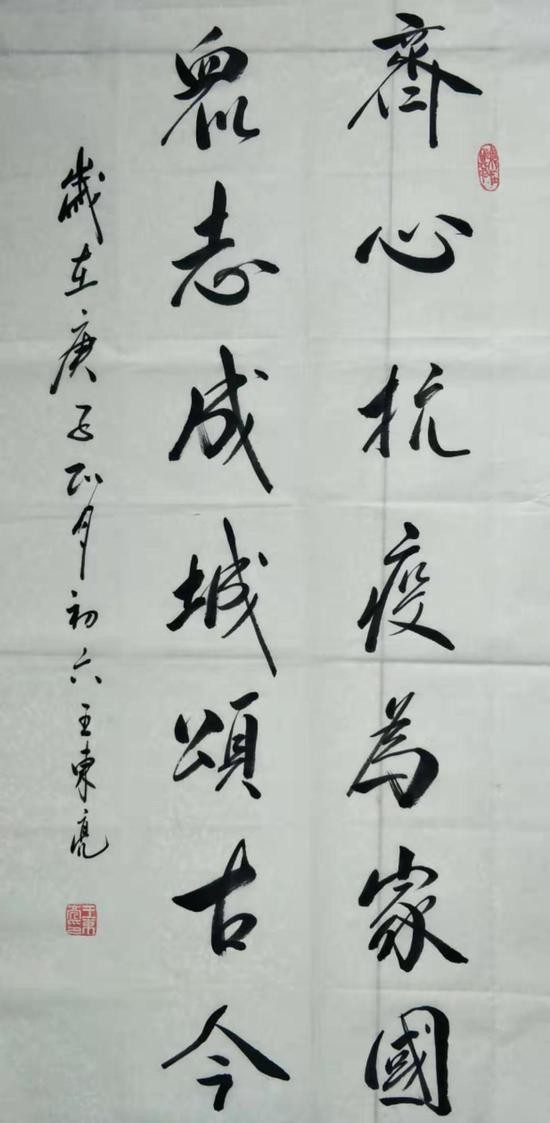 齊心抗疫為家國
眾志成城頌古今
歲在庚子正月初六王東亮